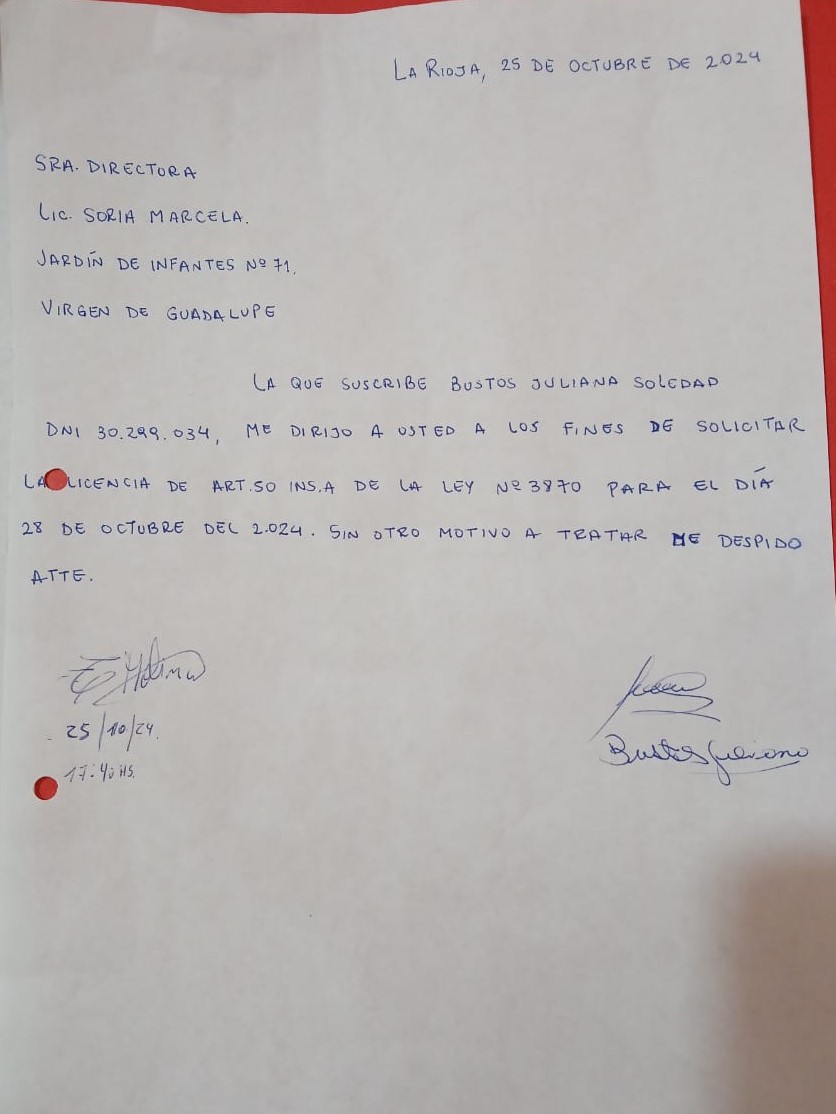 LA RIOJA, 25 DE OCTUBRE DE 2024
SRA. DIRECTORA
LIC. SORIA MARCELA.
JARDÍN DE INFANTES Nº 71.
VIRGEN DE GUADALUPE
LA QUE SUSCRIBE BUSTOS JULIANA SOLEDAD
DNI 30.299.034, ME DIRIJO A USTED A LOS FINES DE SOLICITAR
LA LICENCIA DE ART.50 INS.A DE LA LEY Nº 3870 PARA EL DÍA
28 DE OCTUBRE DEL 2.024. SIN OTRO MOTIVO A TRATAR ME DESPIDO
ATTE.
25/10/24.
17:40 HS.
Bustos Juliana